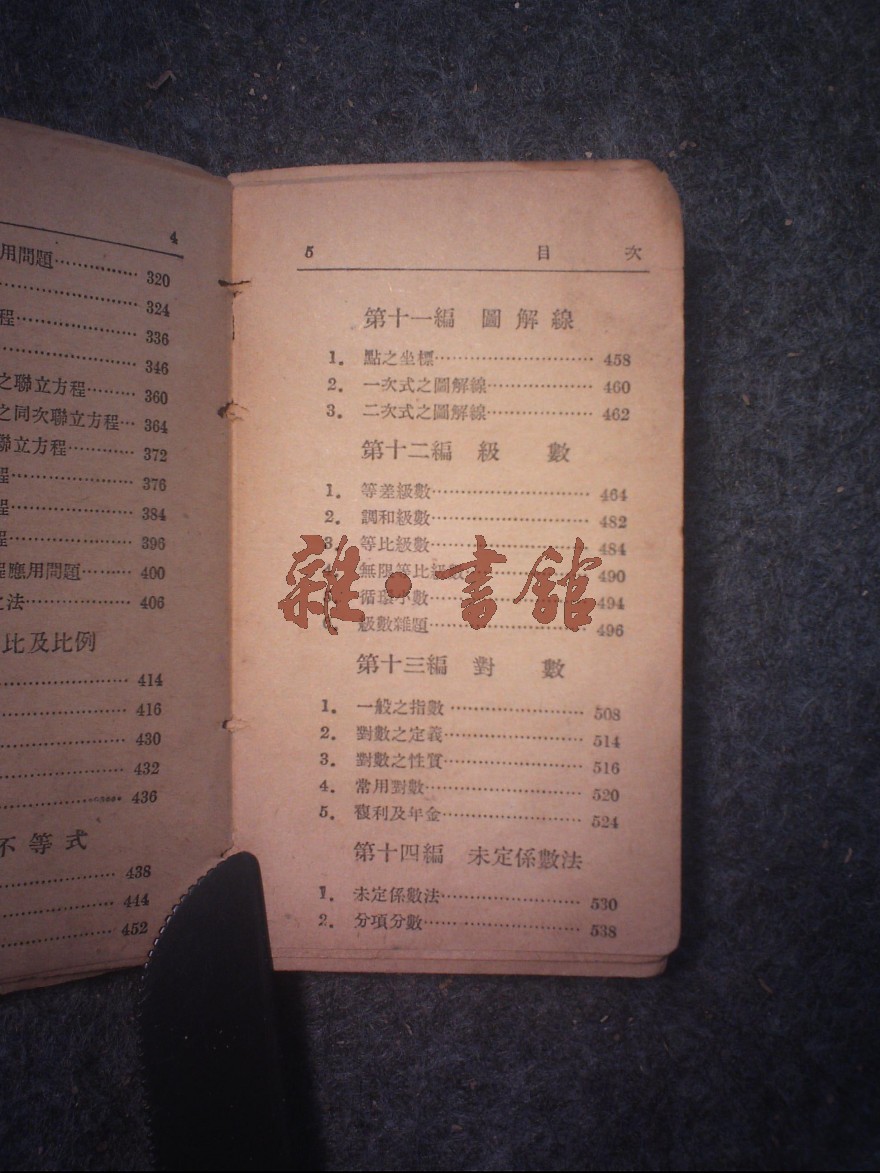 4
用問題……………320
324
程…………336
346
之聯立方程………360
之同次聯立方程…364
聯立方程…………372
程…………376
程…………384
程…………396
程應用問題………400
法…………406
比及比例
414
416
430
432
436
不等式
438
444
452
5 目次
第十一編 圖解線
1. 點之坐標……………………458
2. 一次式之圖解線……………460
3. 二次式之圖解線……………462
第十二編 級數
1. 等差級數……………………464
2. 調和級數……………………482
3. 等比級數……………………484
無限等比級數……………490
循環小數……………………494
級數雜題……………………496
雜·書館
第十三編 對數
1. 一般之指數…………………508
2. 對數之定義…………………514
3. 對數之性質…………………516
4. 常用對數……………………520
5. 複利及年金…………………524
第十四編 未定係數法
1. 未定係數法…………………530
2. 分項分數……………………538